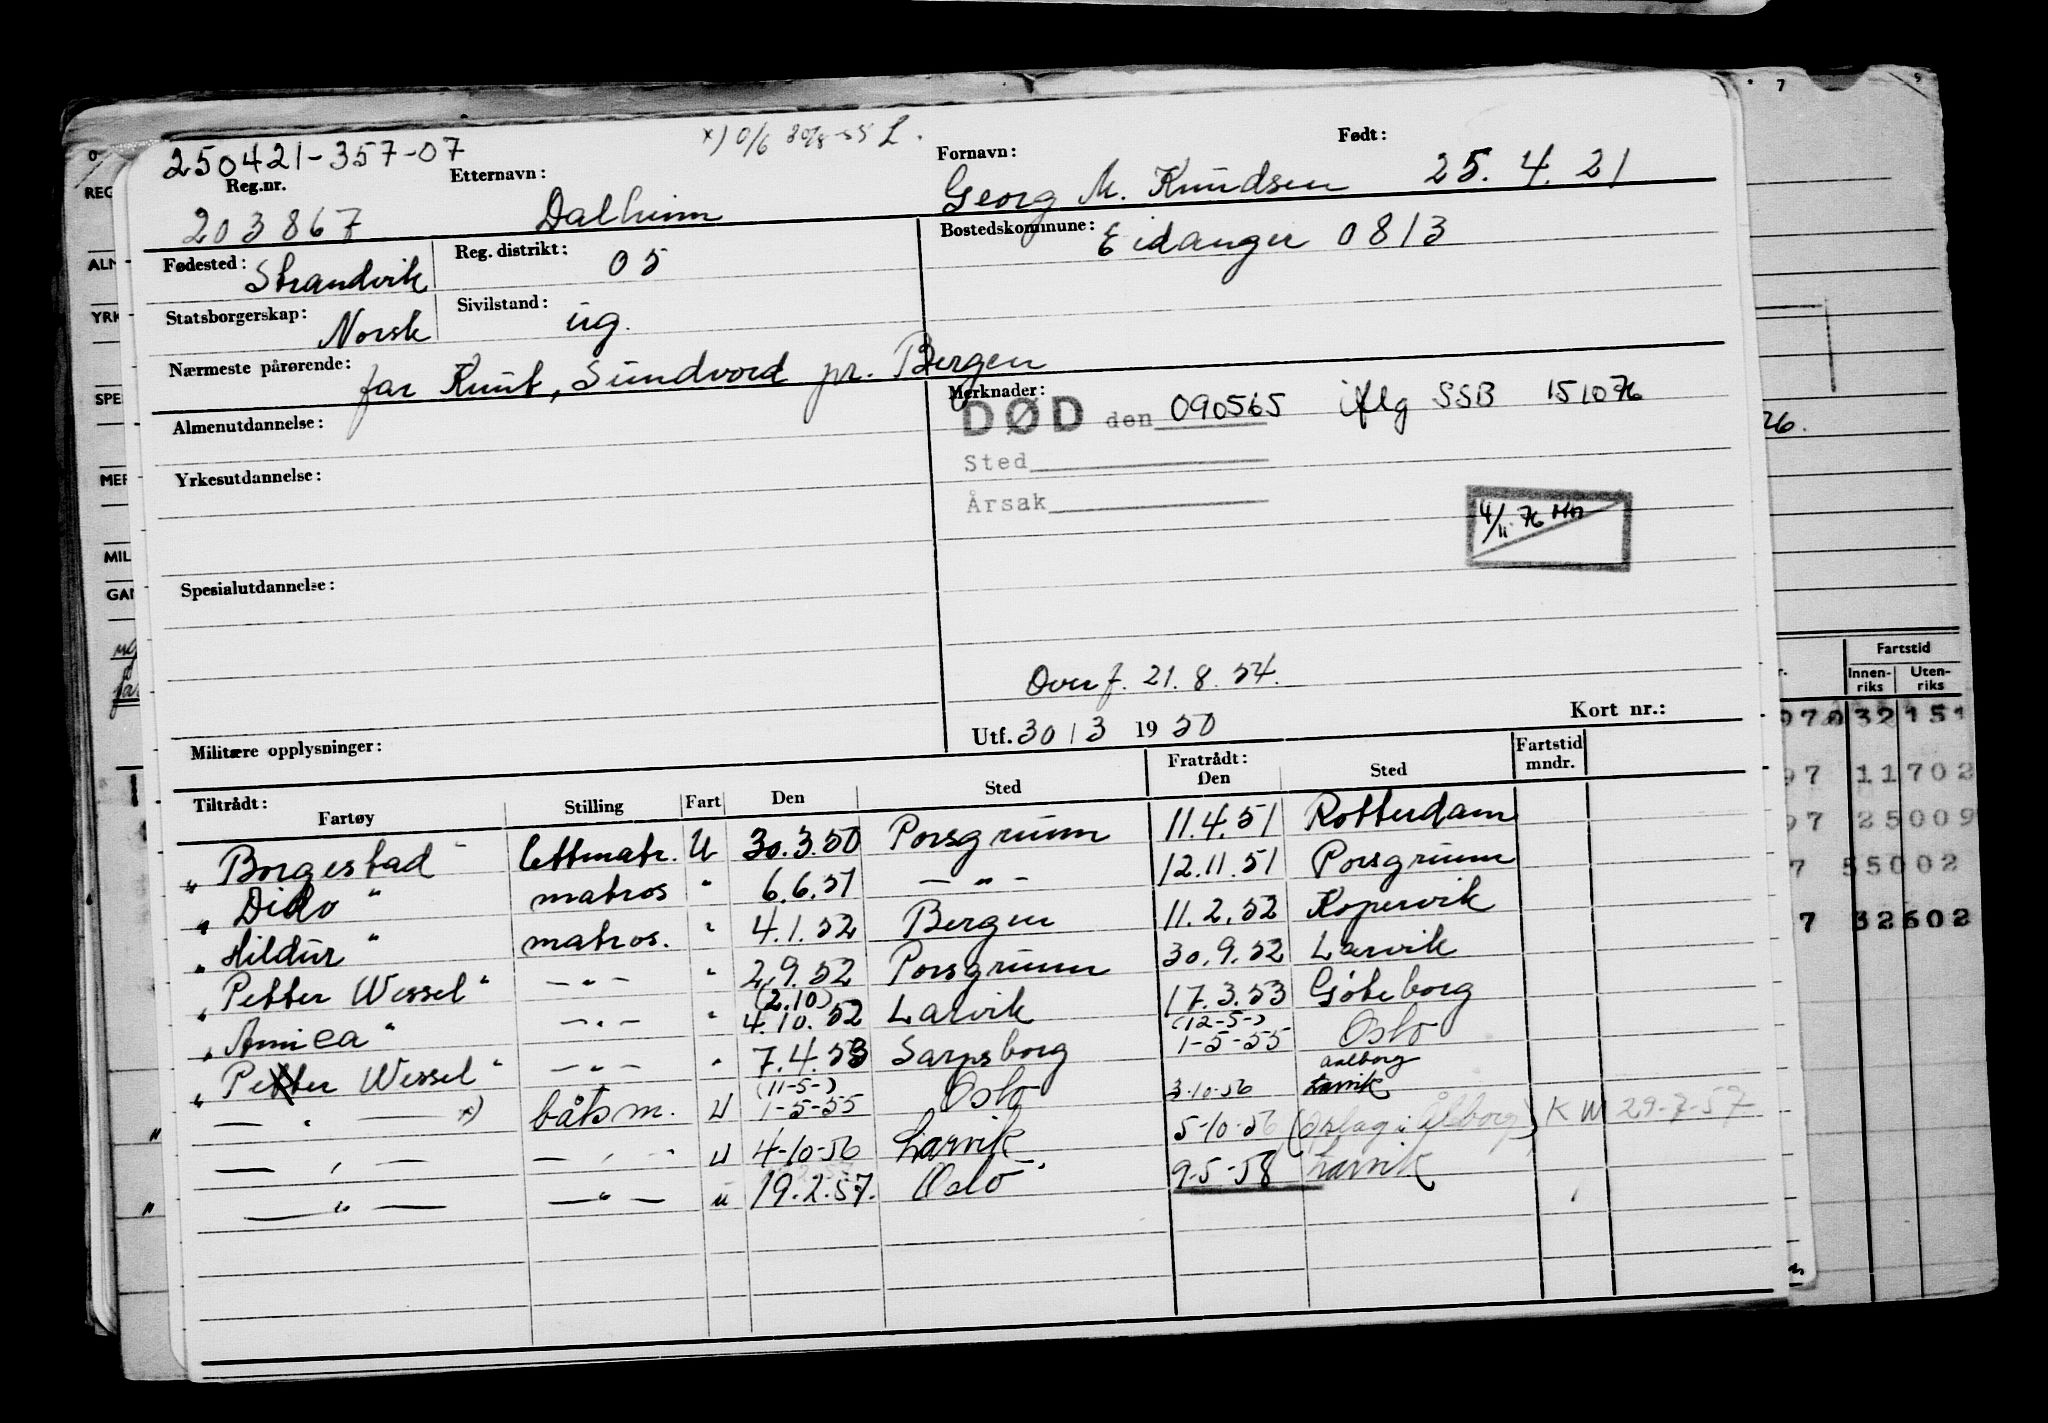 250421-357-07
x) 0/6 30/8-55 L.
Reg.nr. Etternavn: Fornavn: Født:
203867 Dalheim Georg M. Knudsen 25. 4. 21
Fødested: Strandvik Reg. distrikt: 05 Bostedskommune: Eidanger 0813
Statsborgerskap: Norsk Sivilstand: ug.
Nærmeste pårørende: far Knut, Sundvord pr. Bergen
Almenutdannelse: Merknader:
DØD den 090565 iflg SSB 151076
Sted
Yrkesutdannelse: Årsak
4/11 76
Spesialutdannelse:
Overf. 21. 8. 54.
Militære opplysninger: Utf. 30/3 1950 Kort nr.:
Tiltrådt: Fratrådt: Fartstid
Fartøy Stilling Fart Den Sted Den Sted mndr.
"Borgestad" lettmatr. U 30.3.50 Porsgrunn 11.4.51 Rotterdam
"Dido" matros " 6.6.51 — " — 12.11.51 Porsgrunn
"Hildur" matros. " 4.1.52 Bergen 11.2.52 Kopervik
"Petter Wessel" — " — " 2.9.52 Porsgrunn 30.9.52 Larvik
"Amica" — " — " (2.10) 4.10.52 Larvik 17.3.53 Göteborg
"Petter Wessel" — " — " 7.4.53 Sarpsborg (12-5-) 1-5-55 Oslo
— " — x) båtsm. U (11-5-) 1-5-55 Oslo 3-10-56 Larvik Aalborg
" — " — — " — U 4-10-56 Larvik 5-10-56 (Oplag i Ålborg) K W 29-7-57
" — " — — " — u 19.2.57. Oslo 9-5-58 Larvik
REG
ALM
YRK
SPE
MER
MIL
GAN
ug
far
26.
Fartstid
Innen-riks Uten-riks
970 32 151
97 11 702
97 25 009
7 55 002
7 32 602